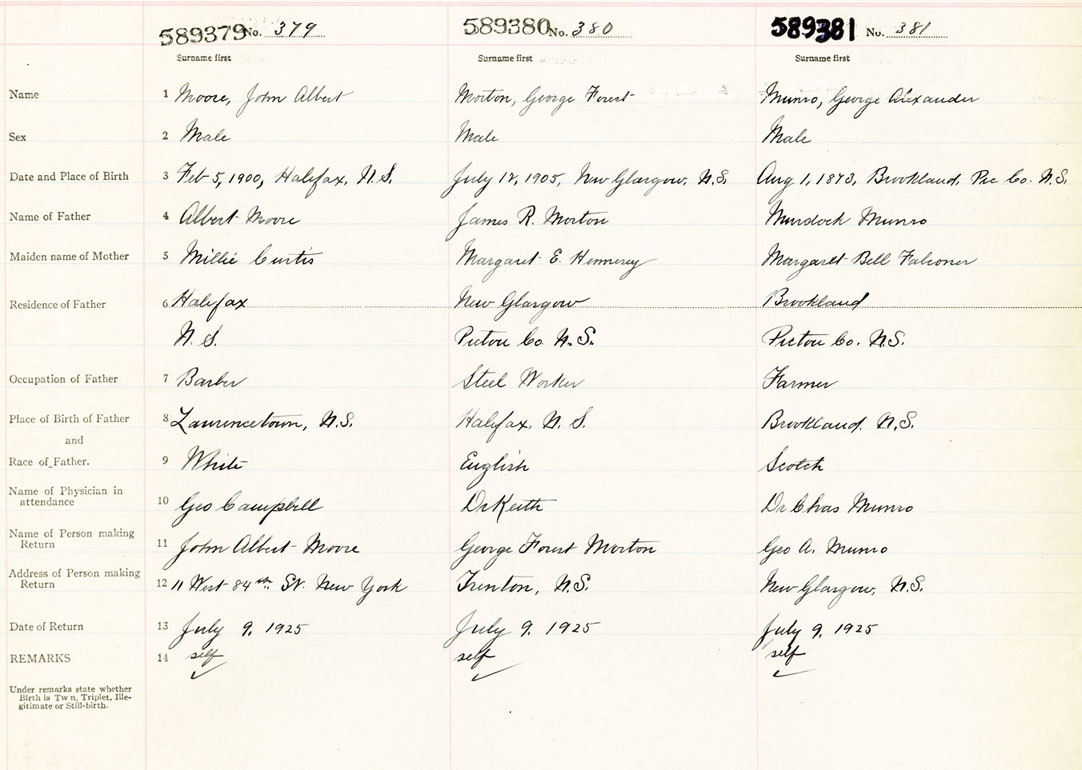 589379 No. 379 589380 No. 380 589381 No. 381
Surname first Surname first Surname first
Name 1 Moore, John Albert Morton, George Forest Munro, George Alexander
Sex 2 Male Male Male
Date and Place of Birth 3 Feb 5, 1900, Halifax, N.S. July 12, 1905, New Glasgow, N.S. Aug 1, 1873, Brookland, Pic Co. N.S.
Name of Father 4 Albert Moore James R. Morton Murdock Munro
Maiden name of Mother 5 Millie Curtis Margaret E. Margaret Bell Falconer
Residence of Father 6 Halifax New Glasgow Brookland
N.S. Pictou Co. N.S. Pictou Co. N.S.
Occupation of Father 7 Barber Steel Worker Farmer
Place of Birth of Father 8 Lawrencetown, N.S. Halifax, N.S. Brookland. N.S.
and
Race of Father. 9 White English Scotch
Name of Physician in
attendance 10 Geo Campbell Dr Keith Dr Chas Munro
Name of Person making
Return 11 John Albert Moore George Forest Morton Geo A. Munro
Address of Person making
Return 12 11 West 84th St. New York Trenton, N.S. New Glasgow, N.S.
Date of Return 13 July 9, 1925 July 9, 1925 July 9, 1925
REMARKS 14 self self self
Under remarks state whether
Birth is Tw n, Triplet, Ille-
gitimate or Still-birth.